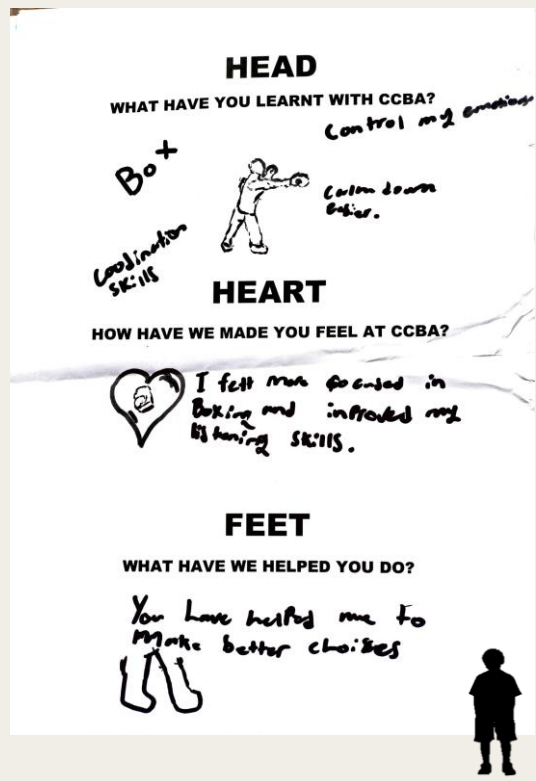 HEAD
WHAT HAVE YOU LEARNT WITH CCBA?
Control my emotions
Bo+
Calm down
easier.
Coodination
skills
HEART
HOW HAVE WE MADE YOU FEEL AT CCBA?
I felt more focused in
Boxing and inproved my
listening skills.
FEET
WHAT HAVE WE HELPED YOU DO?
You have helped me to
Make better choises